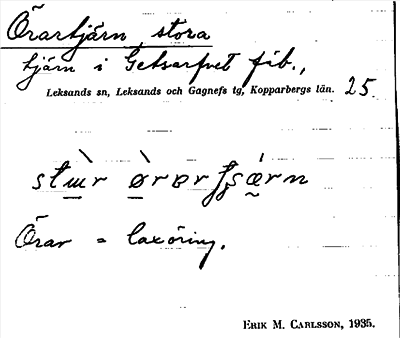 Örartjärn, stora
tjärn i Getsarfvet fäb.,
Leksands sn, Leksands och Gagnefs tg, Kopparbergs län. 25.
Örar = laxöring.
ERIK M. CARLSSON, 1935.